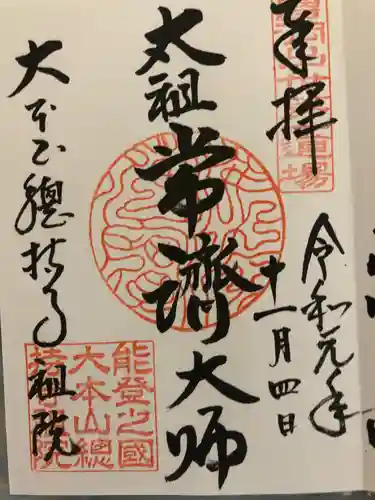 奉拝
令和元年
十一月四日
太祖常濟大师
大本山總持寺祖院
能登之國
大本山總
持寺祖院